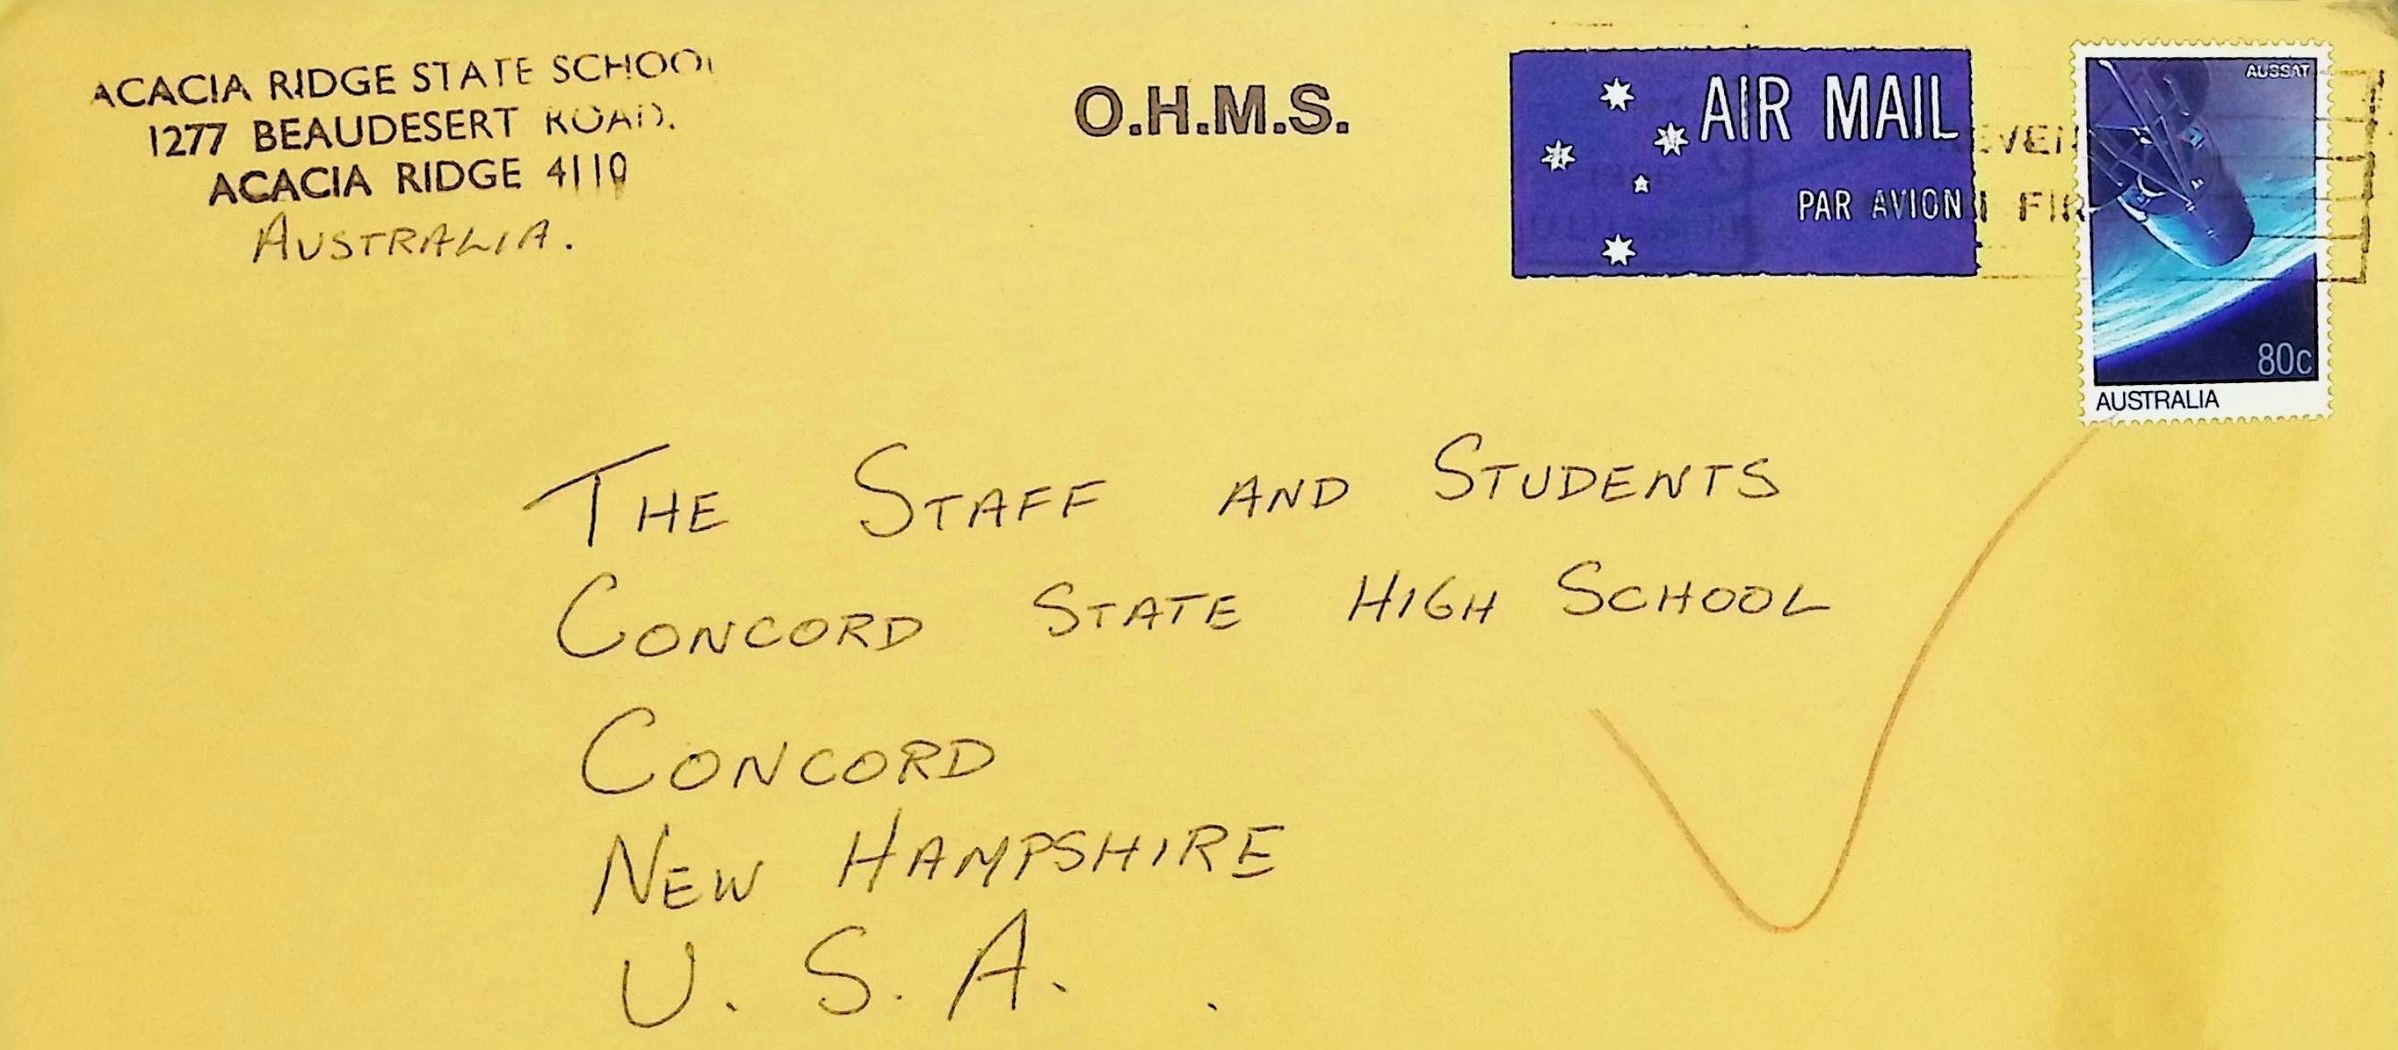 ACACIA RIDGE STATE SCHOOL
1277 BEAUDESERT ROAD.
ACACIA RIDGE 4110
AUSTRALIA.
O.H.M.S.
AIR MAIL
PAR AVION
AUSSAT
80c
AUSTRALIA
THE STAFF AND STUDENTS
CONCORD STATE HIGH SCHOOL
CONCORD
NEW HAMPSHIRE
U.S.A.